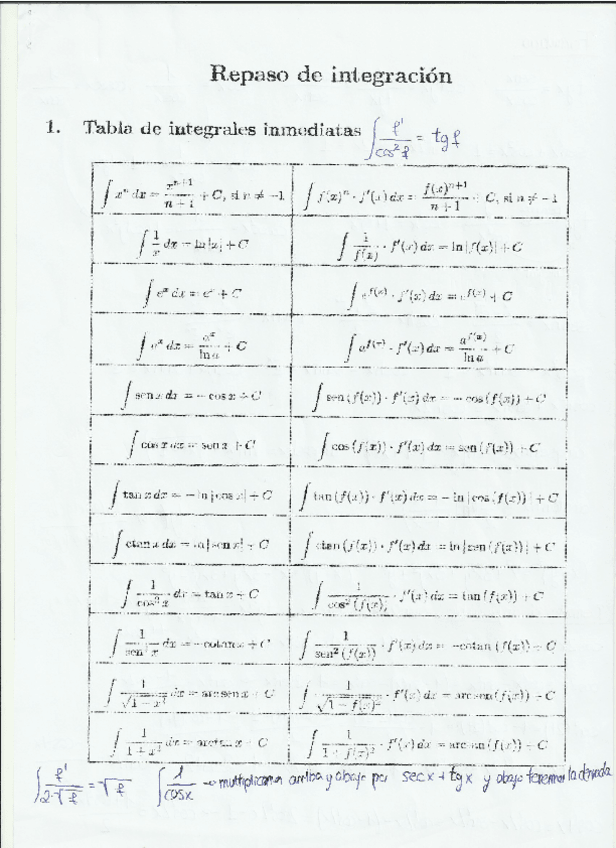 Repaso de integración
1. Tabla de integrales inmediatas ∫ f'/cos² f = tg f
∫ xⁿ dx = xⁿ⁺¹/(n+1) + C, si n ≠ −1 ∫ f(x)ⁿ · f'(x) dx = f(x)ⁿ⁺¹/(n+1) + C, si n ≠ −1
∫ 1/x dx = ln|x| + C ∫ 1/f(x) · f'(x) dx = ln|f(x)| + C
∫ eˣ dx = eˣ + C ∫ e^f(x) · f'(x) dx = e^f(x) + C
∫ aˣ dx = aˣ/ln a + C ∫ a^f(x) · f'(x) dx = a^f(x)/ln a + C
∫ sen x dx = − cos x + C ∫ sen (f(x)) · f'(x) dx = − cos (f(x)) + C
∫ cos x dx = sen x + C ∫ cos (f(x)) · f'(x) dx = sen (f(x)) + C
∫ tan x dx = − ln |cos x| + C ∫ tan (f(x)) · f'(x) dx = − ln |cos (f(x))| + C
∫ ctan x dx = ln |sen x| + C ∫ ctan (f(x)) · f'(x) dx = ln |sen (f(x))| + C
∫ 1/cos² x dx = tan x + C ∫ 1/cos² (f(x)) · f'(x) dx = tan (f(x)) + C
∫ 1/sen² x dx = −cotan x + C ∫ 1/sen² (f(x)) · f'(x) dx = −cotan (f(x)) + C
∫ 1/√(1 − x²) dx = arc sen x + C ∫ 1/√(1 − f(x)²) · f'(x) dx = arc sen (f(x)) + C
∫ 1/(1 + x²) dx = arc tan x + C ∫ 1/(1 + f(x)²) · f'(x) dx = arc tan (f(x)) + C
∫ f'/(2·√f) = √f ∫ 1/cosx → multiplicamos arriba y abajo por sec x + tg x y abajo tenemos la derivada